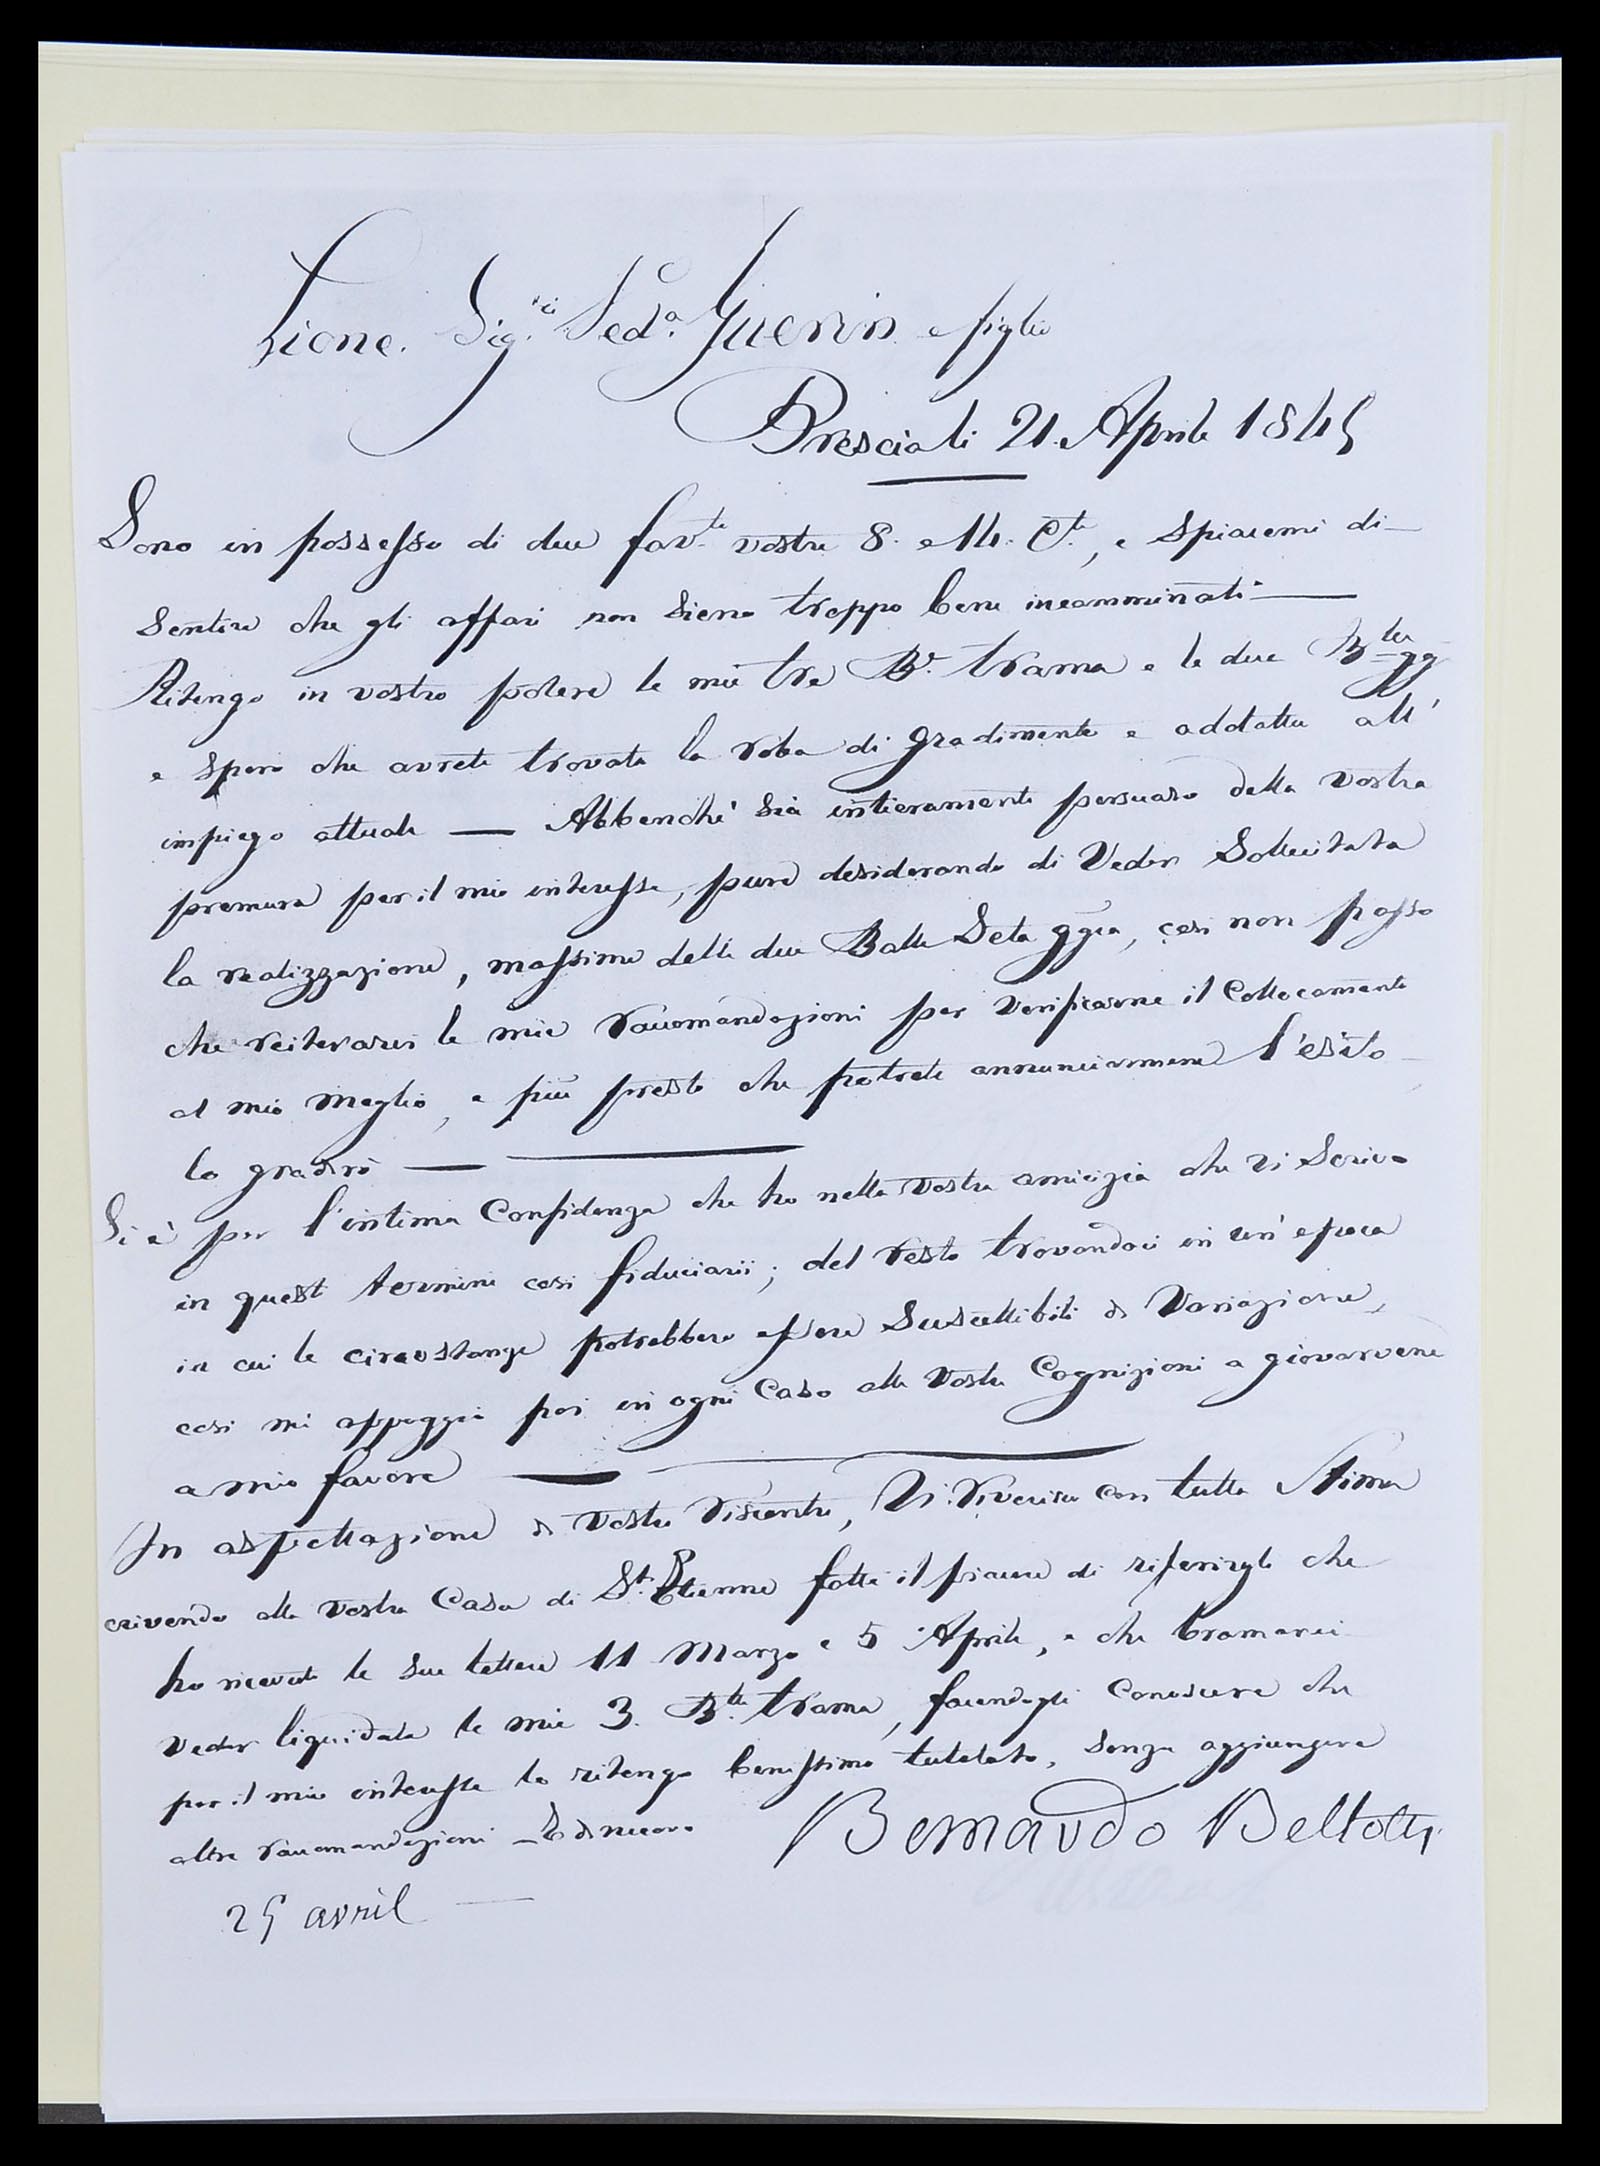 Lione. Sig.ri Ved.a Guerin e figlio
Brescia li 21. Aprile 1845
Sono in possesso di due fav.te vostre 8. e 14. C.te, e spiacemi di
sentire che gli affari non sieno troppo bene incamminati —
Ritengo in vostro potere le mie tre B.e trama e le due B.lle gg
e spero che avrete trovata la roba di gradimento e addatta all'
impiego attuale — Abbenchè sia intieramente persuaso della vostra
premura per il mio interesse, pure desiderando di veder sollecitata
la realizzazione, massime delle due Balle Seta ggia, così non posso
che reiterarvi le mie raccomandazioni per verificarne il collocamento
al mio meglio, e più presto che potrete annunciarmene l'esito
lo gradirò —
Si è per l'intima Confidenza che ho nella vostra amicizia che vi scrivo
in questi termini così fiduciarii; del resto trovandoci in un'epoca
in cui le circostanze potrebbero essere suscettibili di Variazione,
così mi appoggio poi in ogni caso alle vostre Cognizioni a giovarvene
a mio favore —
In aspettazione di vostro riscontro, Vi riverisco con tutta stima
crivendo alla vostra Casa di St. Etienne fatte il piacere di riferirgli che
ho ricevuto le sue lettere 11 Marzo e 5 Aprile, e che bramerei
veder liquidate le mie 3. B.lle trama, facendogli conoscere che
per il mio interesse lo ritengo benissimo tutelato, senza aggiungere
altre raccomandazioni — E di nuovo
Bernardo Bellotti
25 avril —